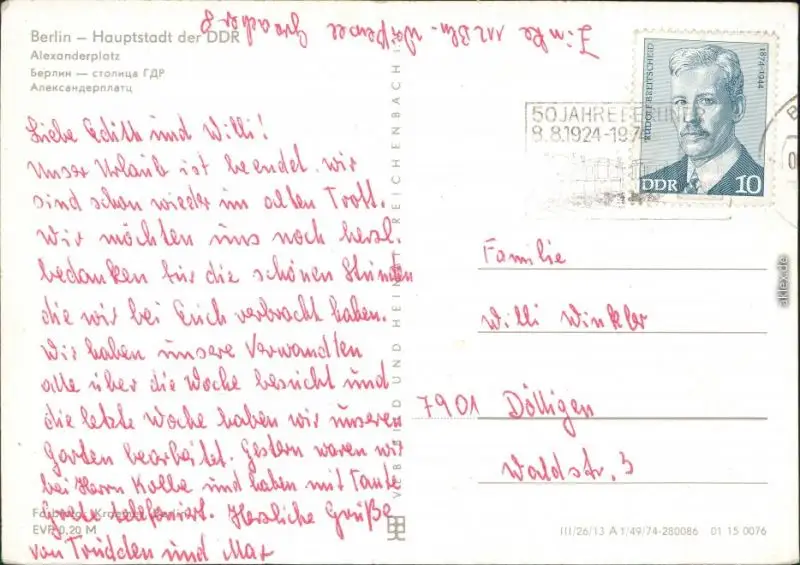 Berlin – Hauptstadt der DDR
Alexanderplatz
Берлин — столица ГДР
Александерплатц
Liebe Edith und Willi!
Unser Urlaub ist beendet. wir
sind schon wieder im alten Trott.
Wir möchten uns noch herzl.
bedanken für die schönen Stunden
die wir bei Euch verbracht haben.
Wir haben unsere Verwandten
alle über die Woche besucht und
die letzte Woche haben wir unseren
Garten bearbeitet. Gestern waren wir
bei Herrn Kolbe und haben mit Tante
telefoniert. Herzliche Grüße
von Trudchen und Max
EVP 0,20 M
REICHENBACH
50 JAHRE BERLINER
8.8.1924-197
RUDOLF BREITSCHEID
1874-1944
DDR 10
Familie
Willi Winkler
7901 Dölligen
Waldstr. 3
III/26/13 A 1/49/74-280086 01 15 0076
aklex.de